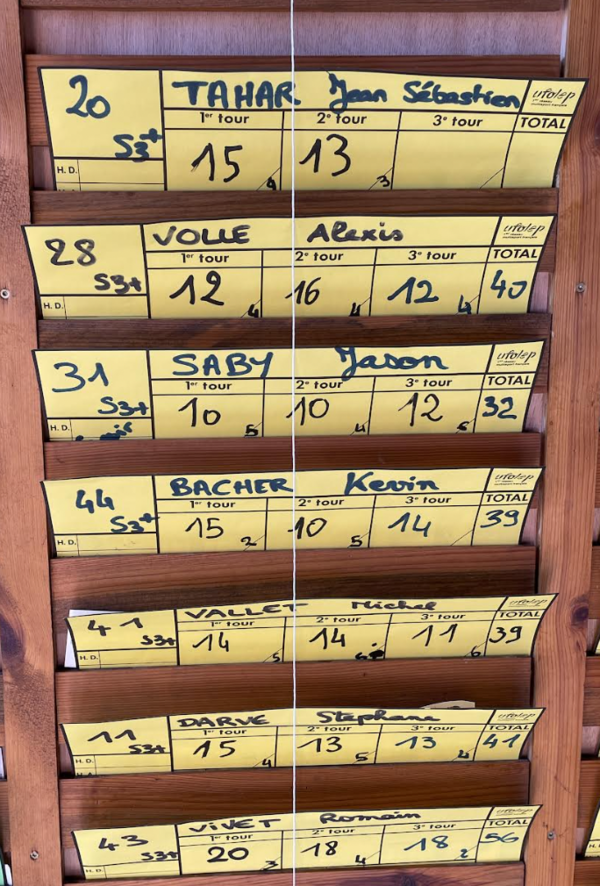 20 TAHAR Jean Sébastien ufolep
1er tour 2e tour 3e tour TOTAL
S3+ 15 13
H.D. 4 3
28 VOLLE Alexis ufolep
1er tour 2e tour 3e tour TOTAL
S3+ 12 16 12 40
H.D. 4 4 4
31 SABY Jason ufolep
1er tour 2e tour 3e tour TOTAL
S3+ 10 10 12 32
H.D. 5 4 6
44 BACHER Kevin ufolep
1er tour 2e tour 3e tour TOTAL
S3+ 15 10 14 39
H.D. 2 5
41 VALLET Michel ufolep
1er tour 2e tour 3e tour TOTAL
S3+ 14 14 11 39
H.D. 5 6 6
11 DARVE Stephane ufolep
1er tour 2e tour 3e tour TOTAL
S3+ 15 13 13 41
H.D. 4 5 4
43 VIVET Romain ufolep
1er tour 2e tour 3e tour TOTAL
S3+ 20 18 18 56
H.D. 3 4 2